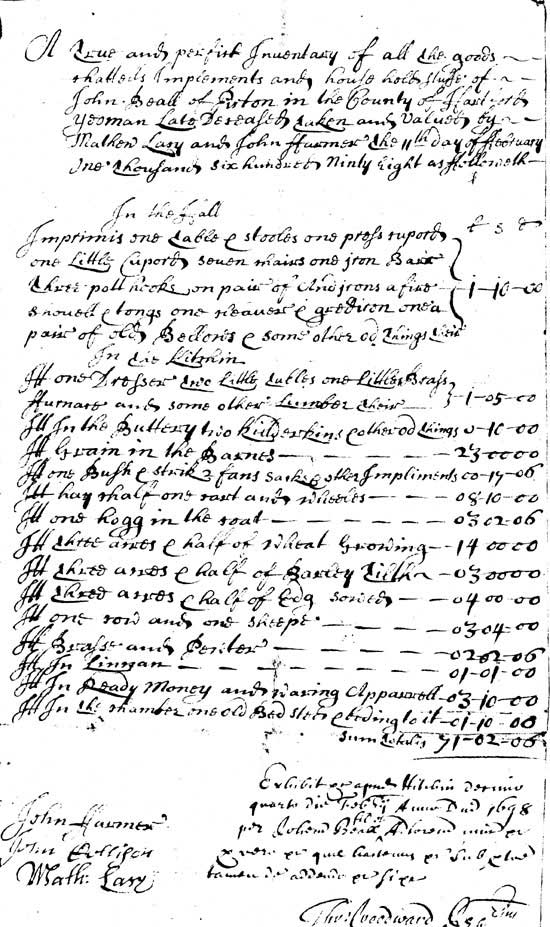 A True and perfict Inventory of all the goods
Chattells Implements and house hold stuffe of
John Beall of Pirton in the County of Hartford
yeoman Late Deceased taken and valued by
Mathew Lary and John Harmer the 11th day of February
one thousand six hundred Ninty Eight as ffolloweth
In the Hall
£ s d
Imprimis one table & stooles one press cupord
one Little Cupord seven chairs one jron Barr
three pott hooks on pair of Andjrons a fire
shouell & tongs one cleaver & gredicon one
pair of old Bellows & some other od things their
1-10-00
In the Kitchin
Itt one Dresser two Little tables one Little Brass
ffurnace and some other Lumber their 1-05-00
Itt In the Buttery two Kilderkins & other od things 0-10-00
Itt Grain in the Barnes 23 00 00
Itt one Bush & strik 2 fans sacks & other Impliments 00-17-06
Itt hay chalf one cart and wheeles 08-10-00
Itt one hogg in the coat 03 02-06
Itt three acres & half of wheat Growing 14 00 00
Itt three acres & half of Barley Tilth 03 00 00
Itt three acres & half of Edg sowed 04 00 00
Itt one cow and one sheepe 03-04-00
Itt Brasse and Peuter 02 02-06
Itt In Linnan 01-01-00
Itt In Ready Money and waring Apparrell 03-10-00
Itt In the chamber one old Bed sted & belonging to it 01-10-00
sum totalis 71-02-06
Exhibit apud Hitchin decimo
quarto die Feb Anno Dni 1698
per Johem Beall
John Harmer
John
Math: Lary
Tho: Woodward